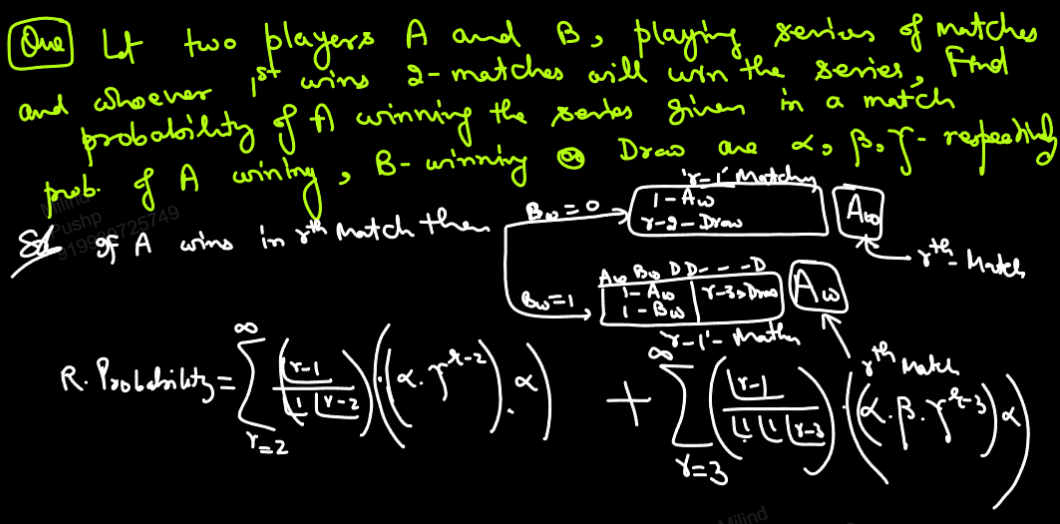 Que Let two players A and B, playing series of matches
and whoever 1st wins 2-matches will win the series, Find
probability of A winning the series given in a match
prob. of A wining, B-winning or Draw are α, β, γ - respectively
Sol If A wins in rth Match then
Bω = 0
'r-1' Matches
1 - Aω
r-2 - Draw
Aω
rth - Match
Bω = 1
Aω Bω D D - - - D
1 - Aω r-3 → Draw
1 - Bω
'r-1' - Matches
Aω
rth Match
R. Probability = ∑_{r=2}^{∞} (⌊r-1 / ⌊1 ⌊r-2) ((α.γ^{r-2}).α) + ∑_{r=3}^{∞} (⌊r-1 / ⌊1 ⌊1 ⌊r-3) . ((α.β.γ^{r-3}) α)
Milind
Pushp
Milind